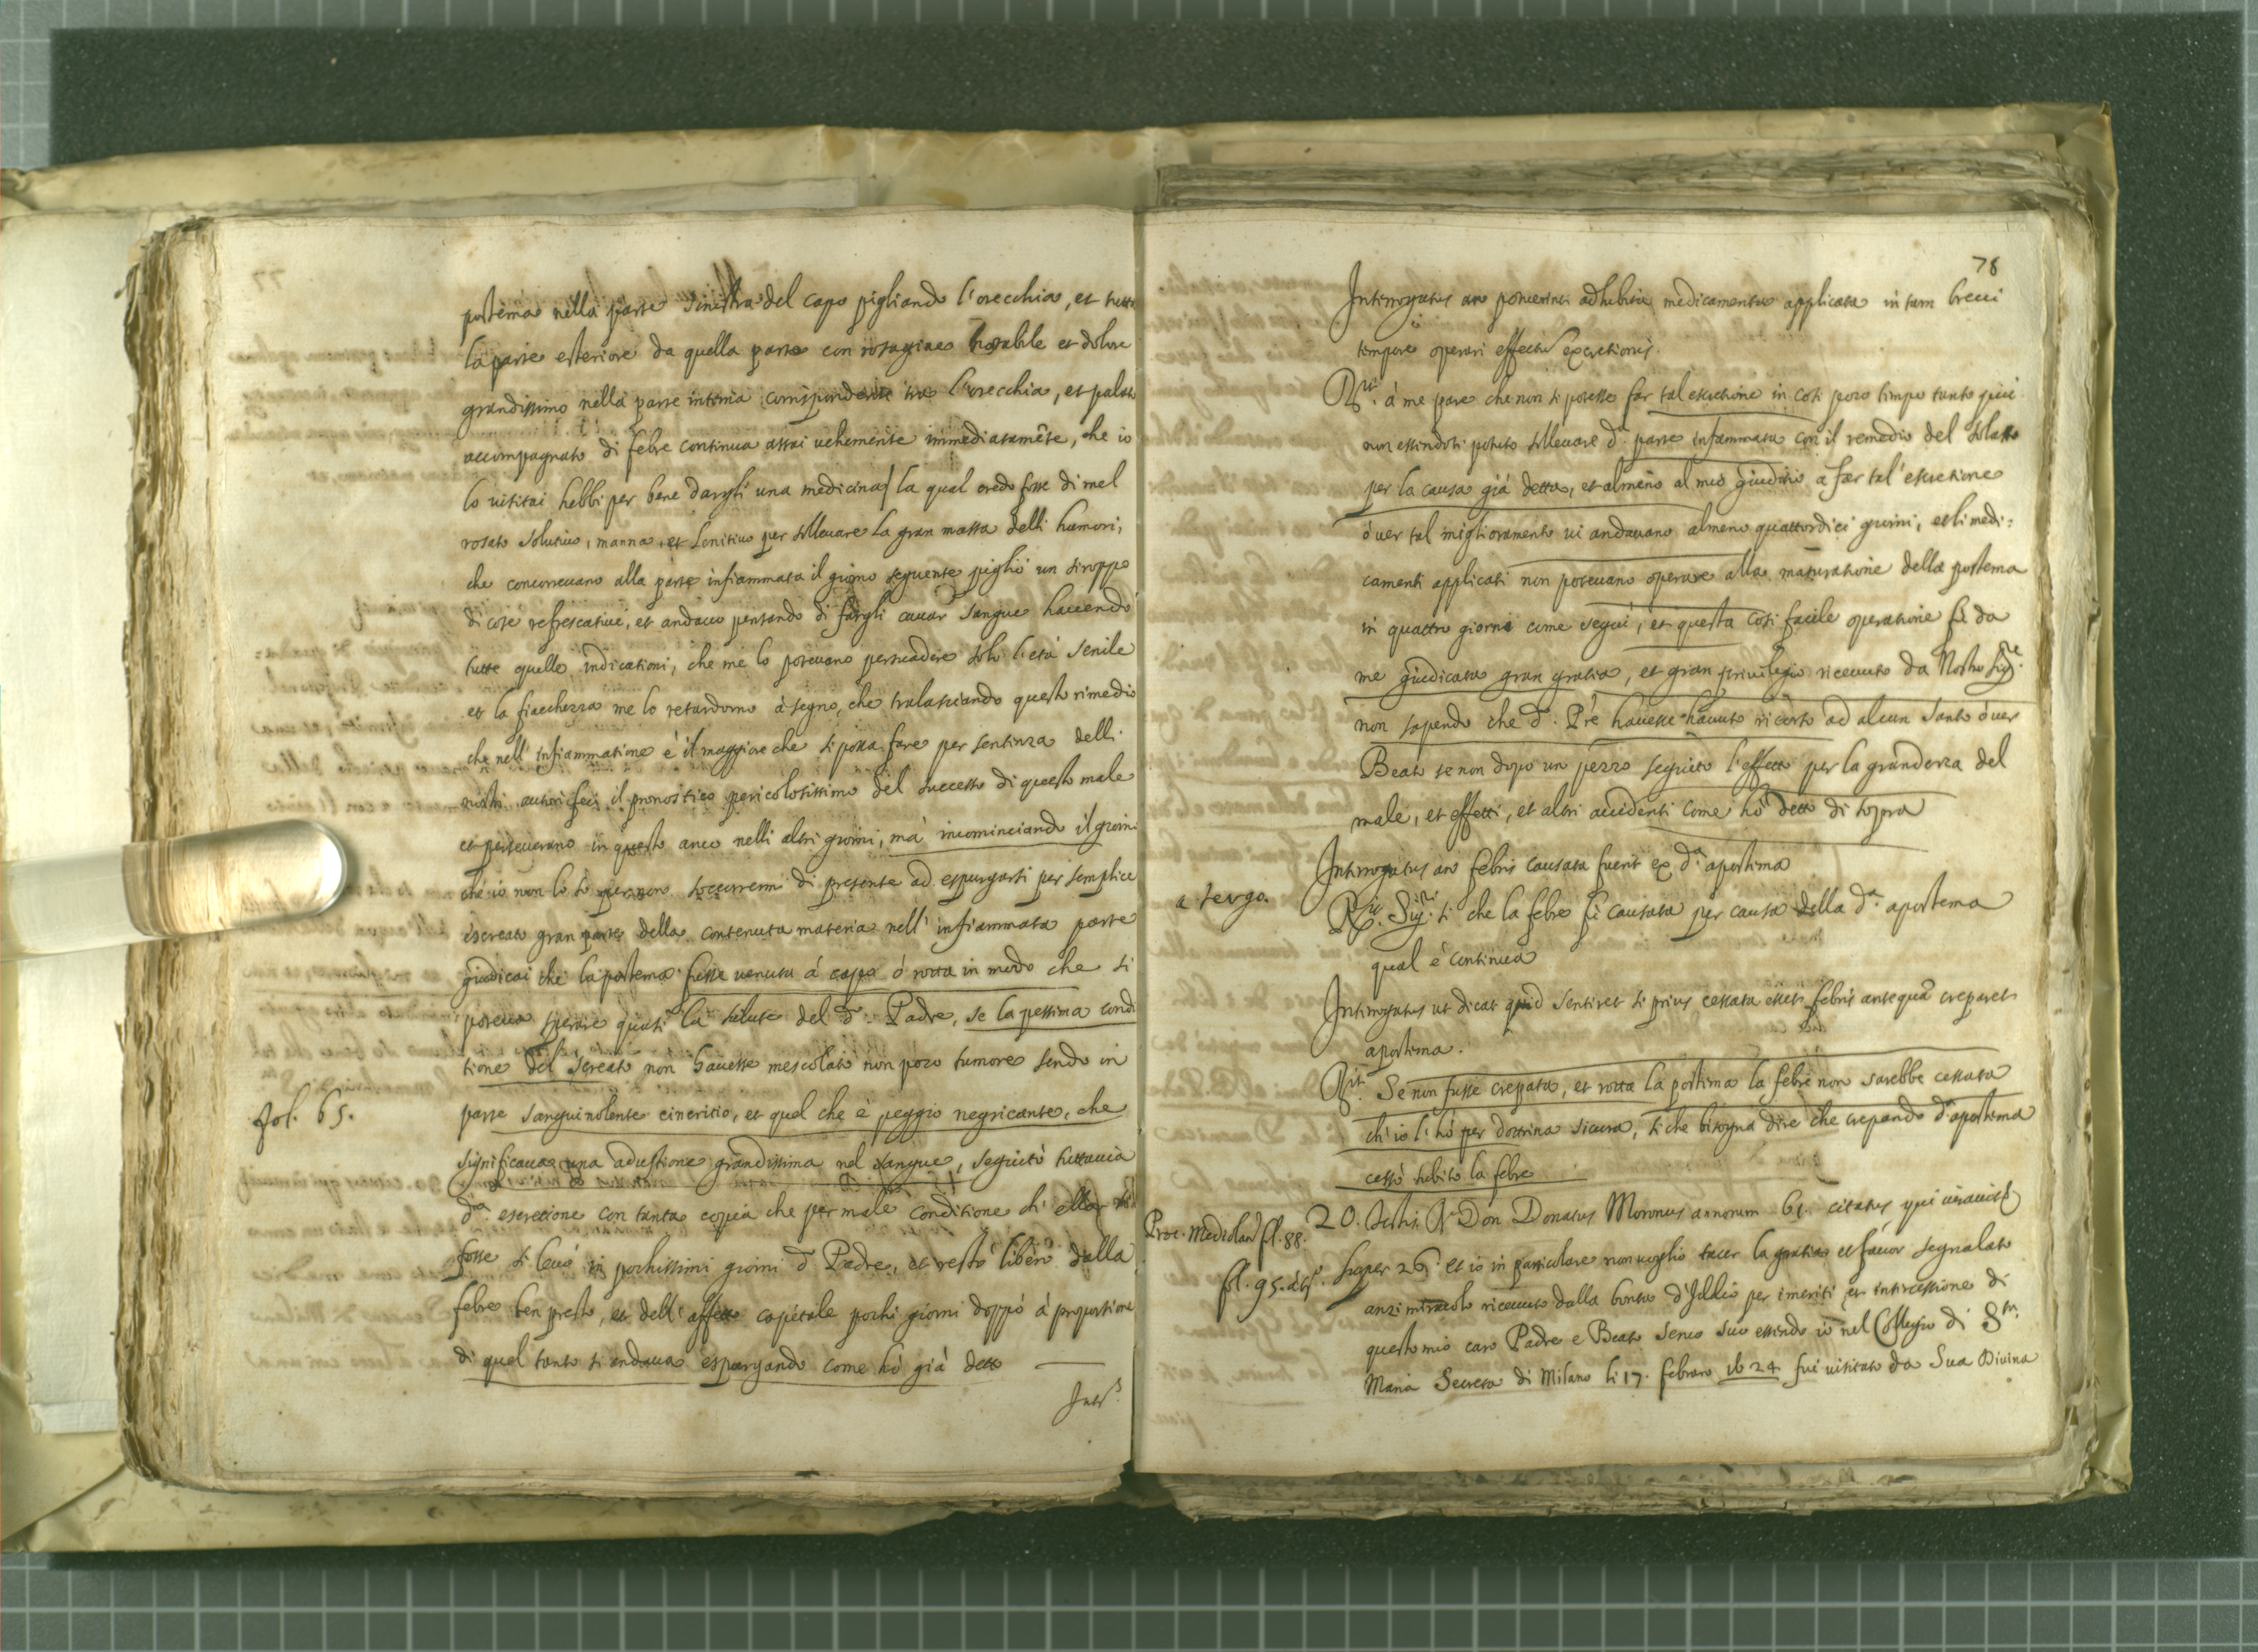 postema nella parte sinistra del capo pigliando l'orecchia, et tutta
la parte esteriore da quella parte con notabile et dolore
grandissimo nella parte interna corrispondente tra l'orecchia, et palato
accompagnato di febre continua assai uehemente immediatamête, che io
lo uisitai hebbi per bene dargli una medicina la qual credo fosse di mel
rosato solutiuo, manna, et lenitiuo per solleuare la gran massa delli humori,
che concorreuano alla parte infiammata il giorno seguente pigliò un siroppo
di cose refrescatiue, et andauo pensando di fargli cauar sangue hauendo
tutte quelle indicationi, che me lo poteuano persuadere solo l'età senile
et la fiacchezza me lo retardorno à segno, che tralasciando questo rimedio
che nell'infiammatione è il maggiore che si possa fare per sentenza delli
nostri autori feci il pronostico pericolosissimo del successo di questo male
et perseuerano in questo anco nelli altri giorni, mà incominciando il giorno
che io non lo sò soccorremi di presente ad espurgarsi per semplice
escreato gran parte della contenuta materia nell'infiammata parte
giudicai che la postema fusse uenuta à capo ò rotta in modo che si
poteua sperare quasi la salute del d.º Padre, se la pessima condi
tione del screato non hauesse mescolato non poco tumore sendo in
fol. 65.
parte sanguinolente cineritio, et quel che è peggio negricante, che
significaua una adustione grandissima nel sangue, seguitò tuttauia
d.ª escretione con tanta copia che per male conditione di
fosse si leuò in pochissimi giorni d.º Padre, et restò libero dalla
febre ben presto, et dell'affetto capitale pochi giorni doppò à proportione
di quel tanto si andaua espurgando come hò già detto
Int.s
78
Interrogatus an potuerint adhibita medicamenta applicata in tam breui
tempore operari effectũ excretionis.
R.it à me pare che non si potesse far tal escretione in così poco tempo tanto più
non essendosi potuto solleuare d.ª parte infiammata con il remedio del salasso
per la causa già detta, et almeno al mio giuditio a far tal'escretione
ouer tal miglioramento ui andauano almeno quattordici giorni, et li medi=
camenti applicati non poteuano operare alla maturatione della postema
in quattro giorni come seguì, et questa così facile operatione fù da
me giudicata gran gratia, et gran priuilegio riceuuto da Nostro Sig.re
non sapendo che d.º Prê hauesse hauuto ricorso ad alcun Santo ouer
Beato se non dopo un pezzo seguito l'effetto per la grandezza del
male, et effetti, et altri accidenti come hò detto di sopra
Interrogatus an febris causata fuerit ex d.ª apostema
a tergo.
R.it Sig.r si che la febre fù causata per causa della d.ª apostema
qual è continua
Interrogatus ut dicat quid sentiret si prius cessata esset febris antequã creparet
apostema.
R.it Se non fusse crepata, et rotta la postema la febre non sarebbe cessata
ch'io l'hò per dottrina sicura, si che bisogna dire che crepando d.ª apostema
cessò subito la febre
Proc. Mediolan. fol. 88.
20. Testis R. Don Donatus Moronus annorum 61. citatus qui iurauit
fol. 95. à tg.º
super 26. et io in particolare non uoglio tacer la gratia et fauor segnalato
anzi miracolo riceuuto dalla bontà d'Iddio per i meriti et intercessione di
questo mio caro Padre e Beato Seruo suo essendo io nel Collegio di S.ta
Maria Secreta di Milano li 17. febraro 1624 fui uisitato da Sua Diuina